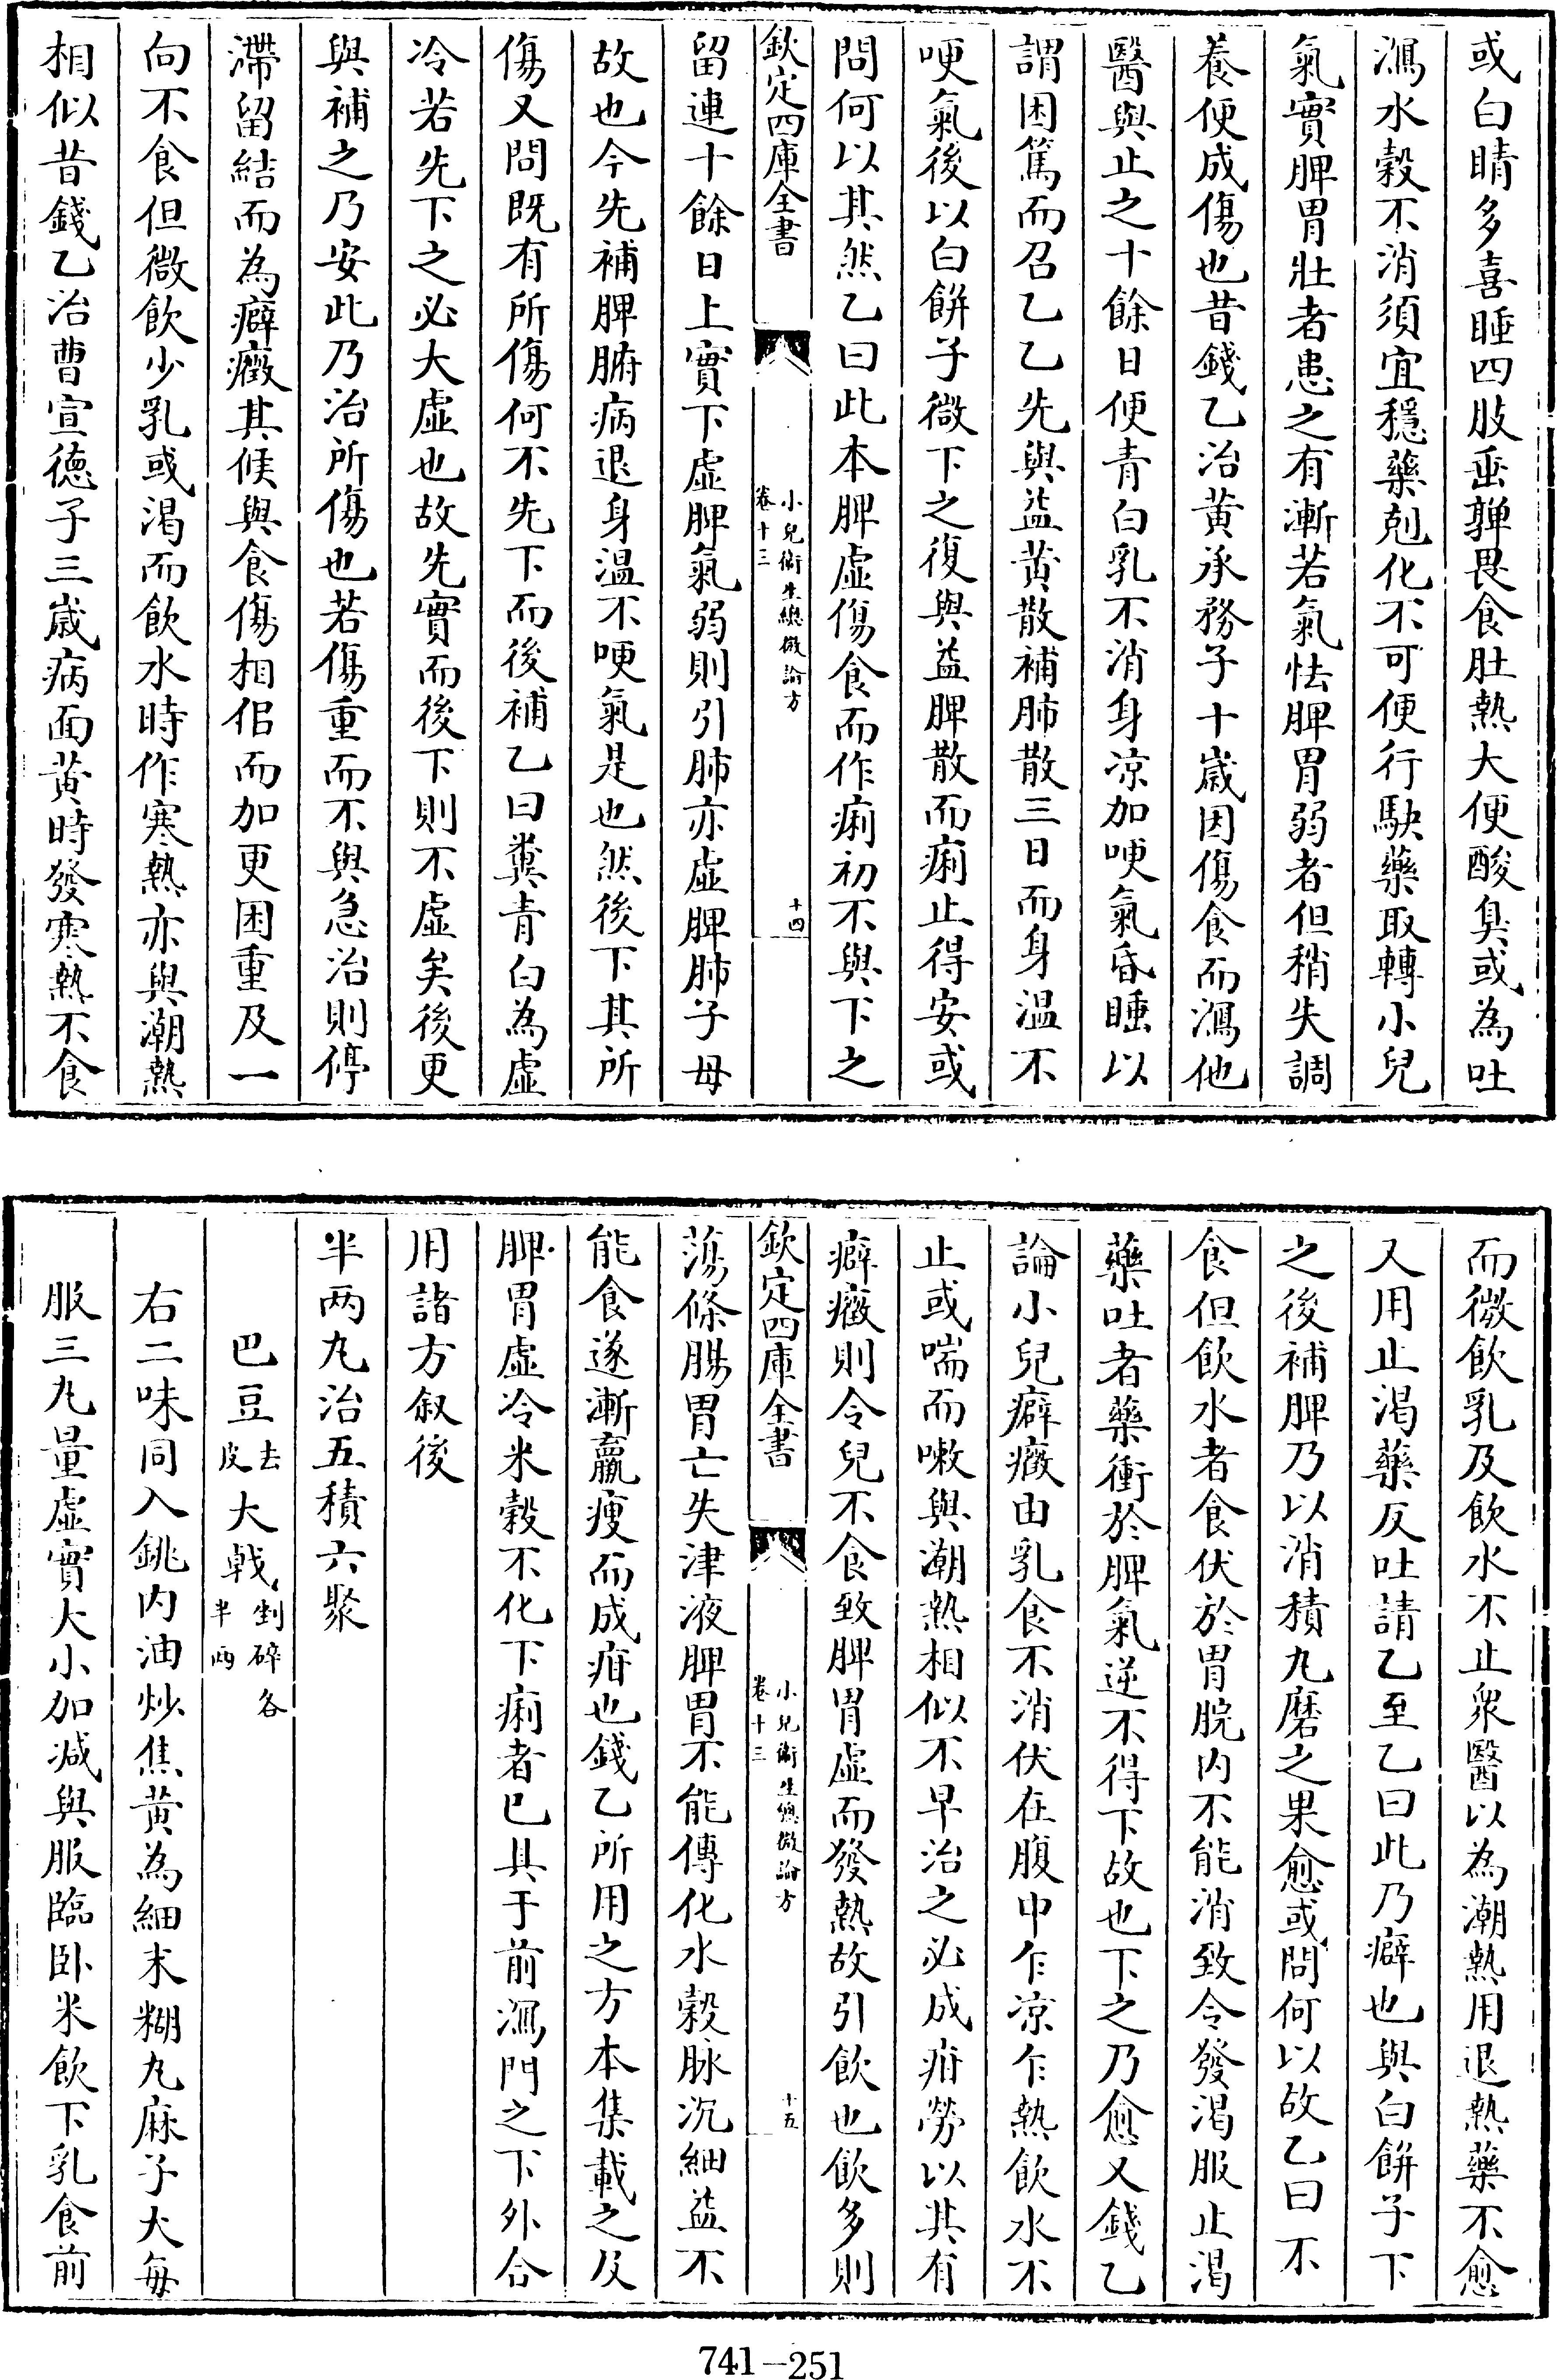 或白睛多喜睡四肢垂嚲畏食肚熱大便酸臭或為吐
瀉水穀不消須宜穩藥剋化不可便行駃藥取轉小兒
氣實脾胃壯者患之有漸若氣怯脾胃弱者但稍失調
養便成傷也昔錢乙治黃承務子十歲因傷食而瀉他
醫與止之十餘日便青白乳不消身凉加哽氣昏睡以
謂困篤而召乙乙先與益黃散補肺散三日而身溫不
哽氣後以白餅子微下之復與益脾散而痢止得安或
問何以其然乙曰此本脾虛傷食而作痢初不與下之
欽定四庫全書
小兒衛生總微論方
卷十三
十四
留連十餘日上實下虛脾氣弱則引肺亦虛脾肺子母
故也今先補脾腑病退身溫不哽氣是也然後下其所
傷又問既有所傷何不先下而後補乙曰糞青白為虛
冷若先下之必大虛也故先實而後下則不虛矣後更
與補之乃安此乃治所傷也若傷重而不與急治則停
滯留結而為癖癥其候與食傷相侣而加更困重及一
向不食但微飲少乳或渴而飲水時作寒熱亦與潮熱
相似昔錢乙治曹宣德子三歲病面黃時發寒熱不食
而微飲乳及飲水不止衆醫以為潮熱用退熱藥不愈
又用止渴藥反吐請乙至乙曰此乃癖也與白餅子下
之後補脾乃以消積丸磨之果愈或問何以故乙曰不
食但飲水者食伏於胃脘内不能消致令發渴服止渴
藥吐者藥衝於脾氣逆不得下故也下之乃愈又錢乙
論小兒癖癥由乳食不消伏在腹中乍凉乍熱飲水不
止或喘而嗽與潮熱相似不早治之必成疳勞以其有
癖癥則令兒不食致脾胃虛而發熱故引飲也飲多則
欽定四庫全書
小兒衛生總微論方
卷十三
十五
蕩滌腸胃亡失津液脾胃不能傳化水穀脉沉細益不
能食遂漸羸瘦而成疳也錢乙所用之方本集載之及
脾胃虛冷米穀不化下痢者已具于前瀉門之下外合
用諸方叙後
半兩丸治五積六聚
巴豆去皮大戟剉碎各半兩
右二味同入銚内油炒焦黃為細末糊丸麻子大每
服三丸量虛實大小加減與服臨卧米飲下乳食前
741-251